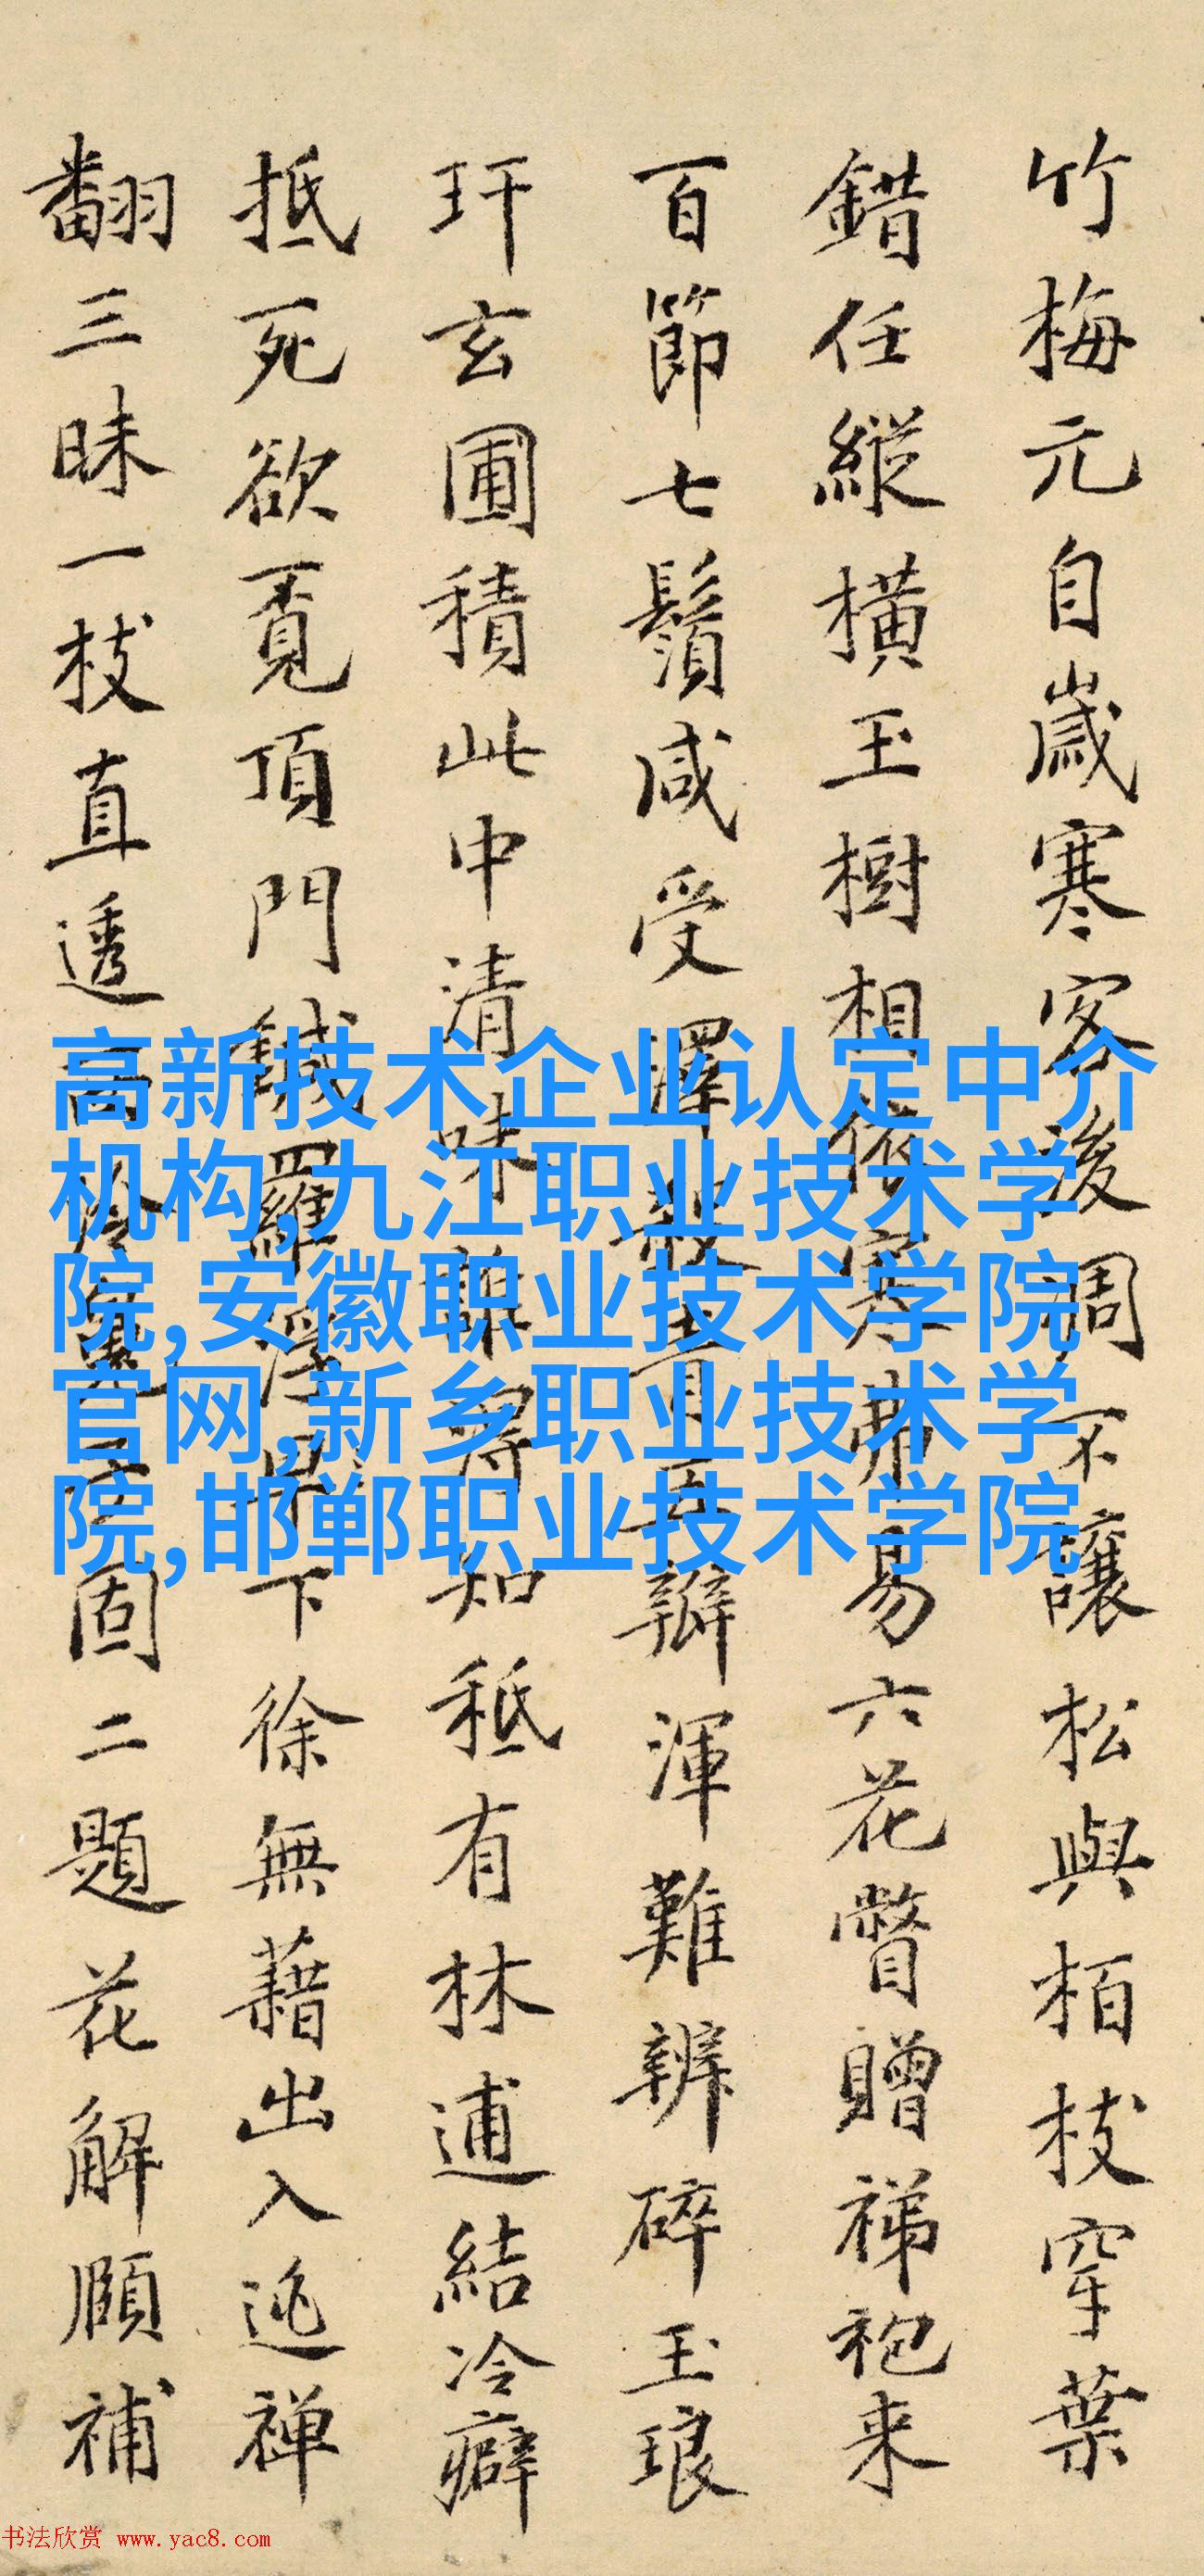 竹梅元自歲寒客後凋不讓松與栢枝穿葉
錯任縱橫玉樹相依寒弗易六花瞥贈祶袍来
百節七鬚咸受澤殺青五瓣渾難辨碎玉琅
玕玄圃積此中清味解得知秪有林逋結冷癖
抵死欲覔頂門鍼羅浮早下徐無藉出入迯禅
翻三昧一枝直透固二題花解頤補
高新技术企业认定中介
机构,九江职业技术学
院,安徽职业技术学院
官网,新乡职业技术学
院,邯郸职业技术学院
书法欣赏 www.yac8.com